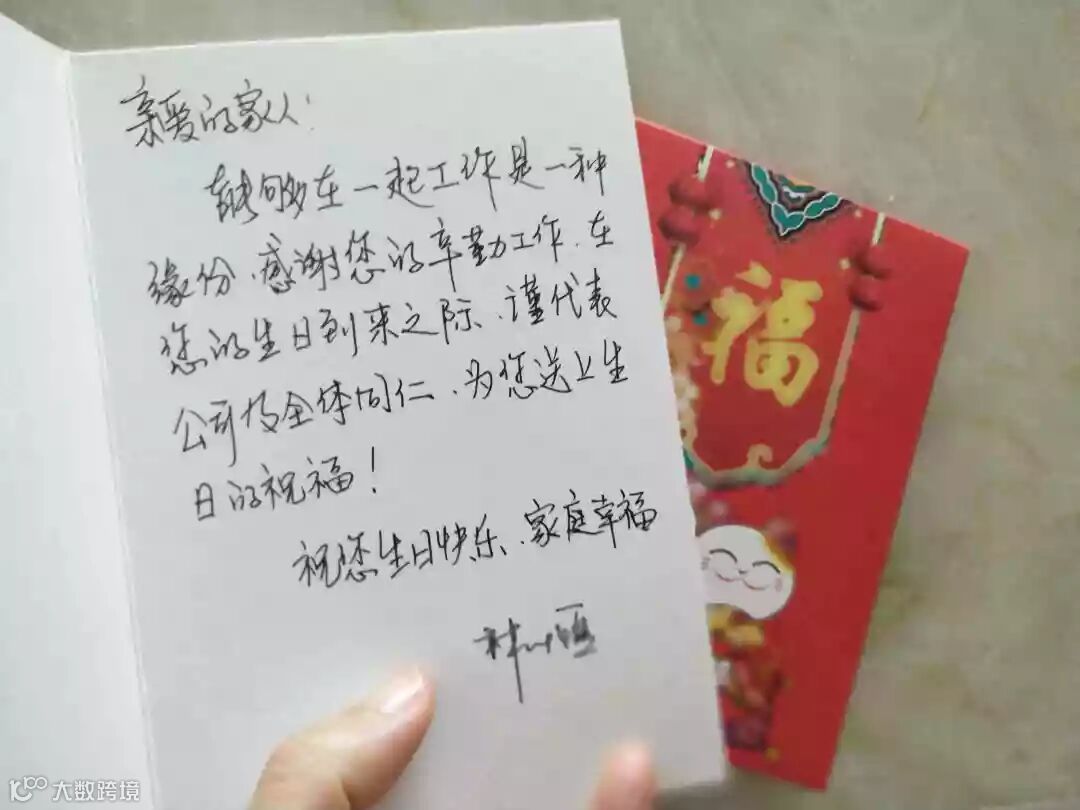 亲爱的家人:
能够在一起工作是一种
缘份、感谢您的辛勤工作、在
您的生日到来之际、谨代表
公司及全体同仁、为您送上生
日的祝福!
祝您生日快乐、家庭幸福
福
大数跨境